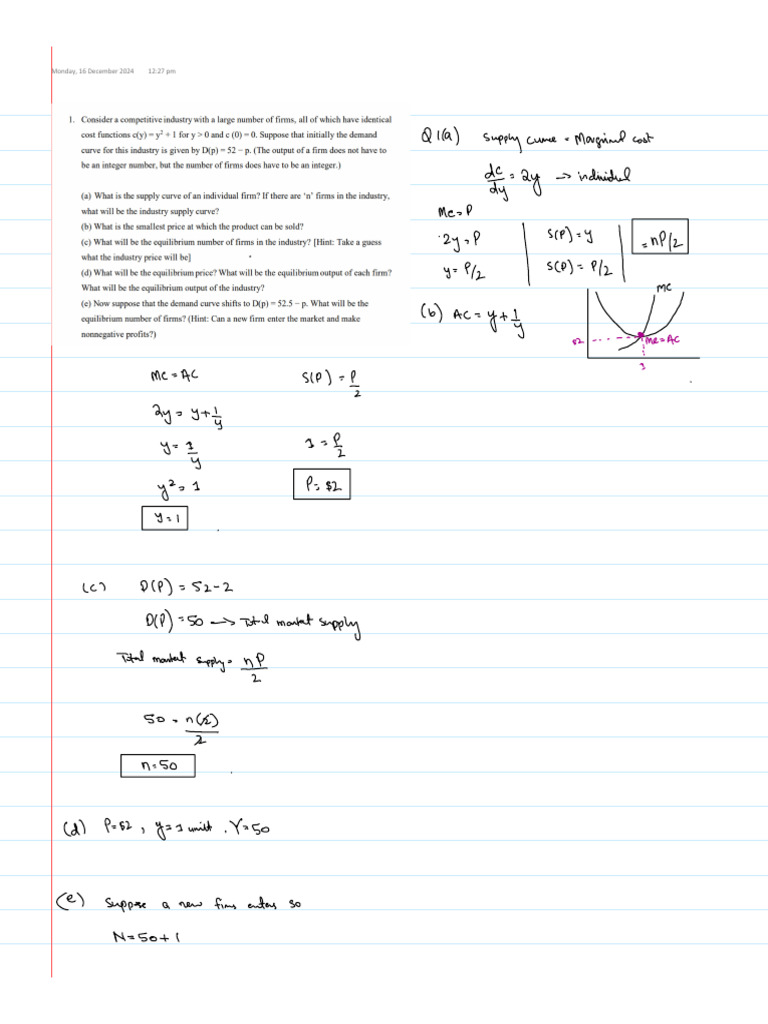 Monday, 16 December 2024 12:27 pm
1. Consider a competitive industry with a large number of firms, all of which have identical
cost functions c(y) = y² + 1 for y > 0 and c (0) = 0. Suppose that initially the demand
curve for this industry is given by D(p) = 52 – p. (The output of a firm does not have to
be an integer number, but the number of firms does have to be an integer.)
(a) What is the supply curve of an individual firm? If there are 'n' firms in the industry,
what will be the industry supply curve?
(b) What is the smallest price at which the product can be sold?
(c) What will be the equilibrium number of firms in the industry? [Hint: Take a guess
what the industry price will be]
(d) What will be the equilibrium price? What will be the equilibrium output of each firm?
What will be the equilibrium output of the industry?
(e) Now suppose that the demand curve shifts to D(p) = 52.5 – p. What will be the
equilibrium number of firms? (Hint: Can a new firm enter the market and make
nonnegative profits?)
Q1(a) Supply curve = Marginal cost
dc/dy = 2y → individual
MC = P
2y = P
y = P/2
S(P) = y
S(P) = P/2
= nP/2
(b) AC = y + 1/y
MC
$2
MC = AC
1
MC = AC
2y = y + 1/y
y = 1/y
y² = 1
y = 1
S(P) = P/2
1 = P/2
P = $2
(c) D(P) = 52 - 2
D(P) = 50 → Total market supply
Total market supply = nP/2
50 = n(2)/2
n = 50
(d) P = $2, y = 1 unit, Y = 50
(e) Suppose a new firms enters so
N = 50 + 1